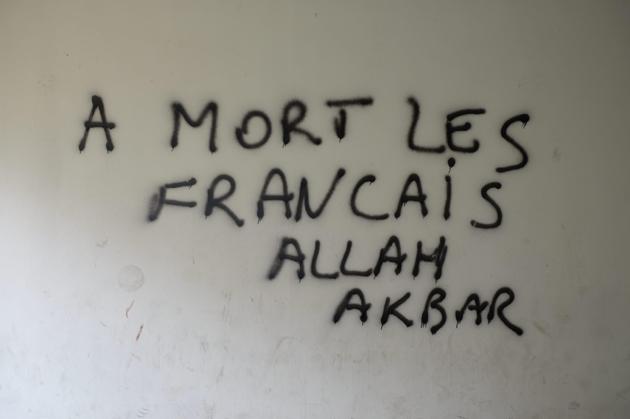 A MORT LES
FRANCAiS
ALLAH
AKBAR